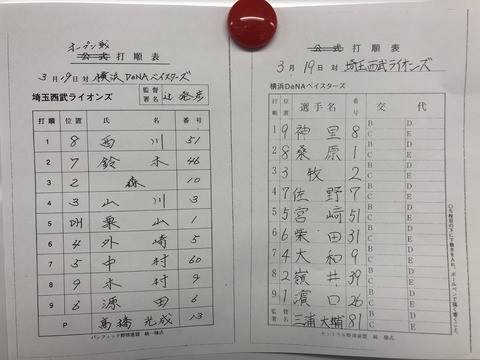 オープン戦
公式 打順表
3月19日 対 横浜DeNAベイスターズ
埼玉西武ライオンズ 監督署名 辻発彦
打順 位置 氏 名 番号
1 8 西川 51
2 7 鈴木 46
3 2 森 10
4 3 山川 3
5 DH 栗山 1
6 4 外崎 5
7 5 中村 60
8 9 木村 9
9 6 源田 6
P 髙橋光成 13
パシフィック野球連盟 統一様式
公式 打順表
3月19日 対 埼玉西武ライオンズ
横浜DeNAベイスターズ
打順 位置 選手名 番号 交代
1 9 神里 8 B C D E
2 8 桑原 1 B C D E
3 3 牧 2 B C D E
4 7 佐野 7 B C D E
5 5 宮﨑 51 B C D E
6 6 柴田 31 B C D E
7 4 大和 9 B C D E
8 2 嶺井 39 B C D E
9 1 濵口 26 B C D E
監督署名 三浦大輔 81 B C D E
セントラル野球連盟 統一様式